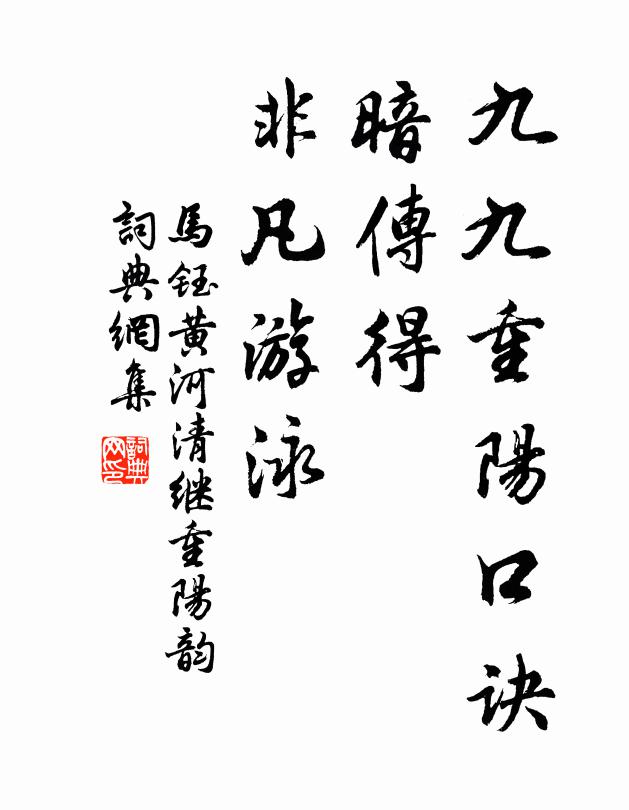 九九重陽口诀
暗傳得
非凡游泳
馬鈺黄河清继重陽韵
詞典網集
詞典网印